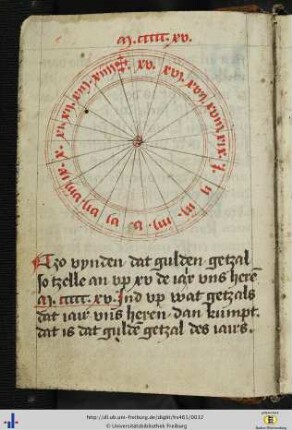 M. CCCCC. XV.
XV. XVI. XVII. XVIII. XIX. I. II. III. IIII. V. VI. VII. VIII. IX. X. XI. XII. XIII. XIIII
Tzo vynden dat gulden getzal
so tzelle an vp xv de iar vns herē
M. CCCCC. XV. Ind vp wat getzals
dat iair vns heren dan kumpt.
dat is dat guldē getzal des iairs.
http://dl.ub.uni-freiburg.de/diglit/hs463/0032
© Universitätsbibliothek Freiburg